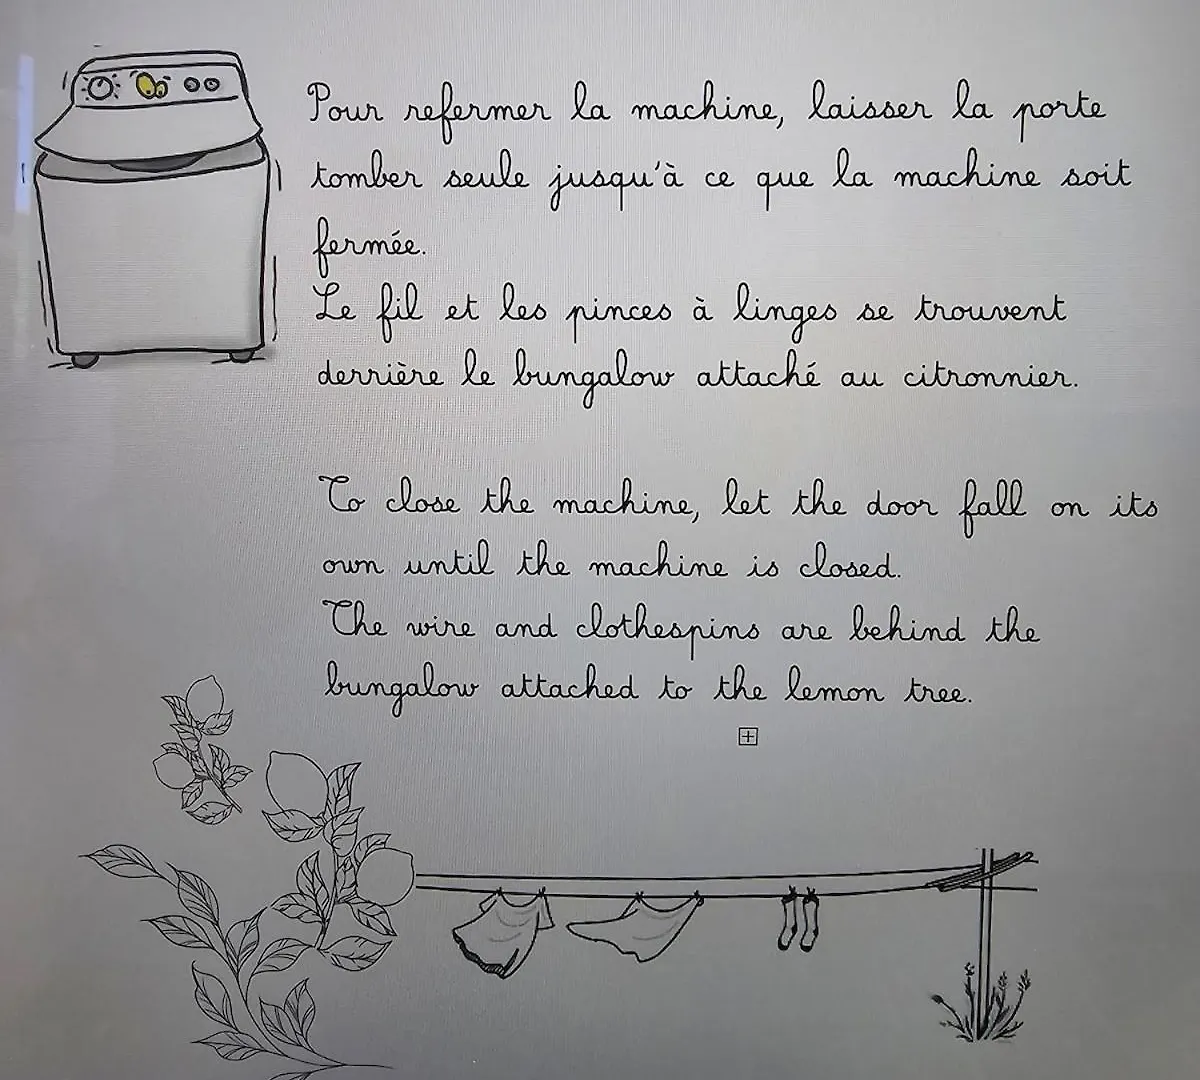 Pour refermer la machine, laisser la porte
tomber seule jusqu'à ce que la machine soit
fermée.
Le fil et les pinces à linges se trouvent
derrière le bungalow attaché au citronnier.
To close the machine, let the door fall on its
own until the machine is closed.
The wire and clothespins are behind the
bungalow attached to the lemon tree.